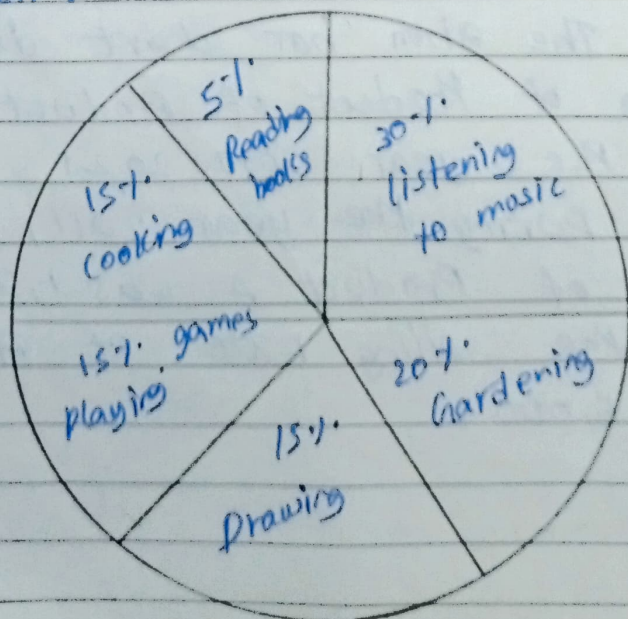 5%
Reading
books
30%
listening
to mosic
15%
cooking
15% games
playing
20%
Gardening
15%
Drawing